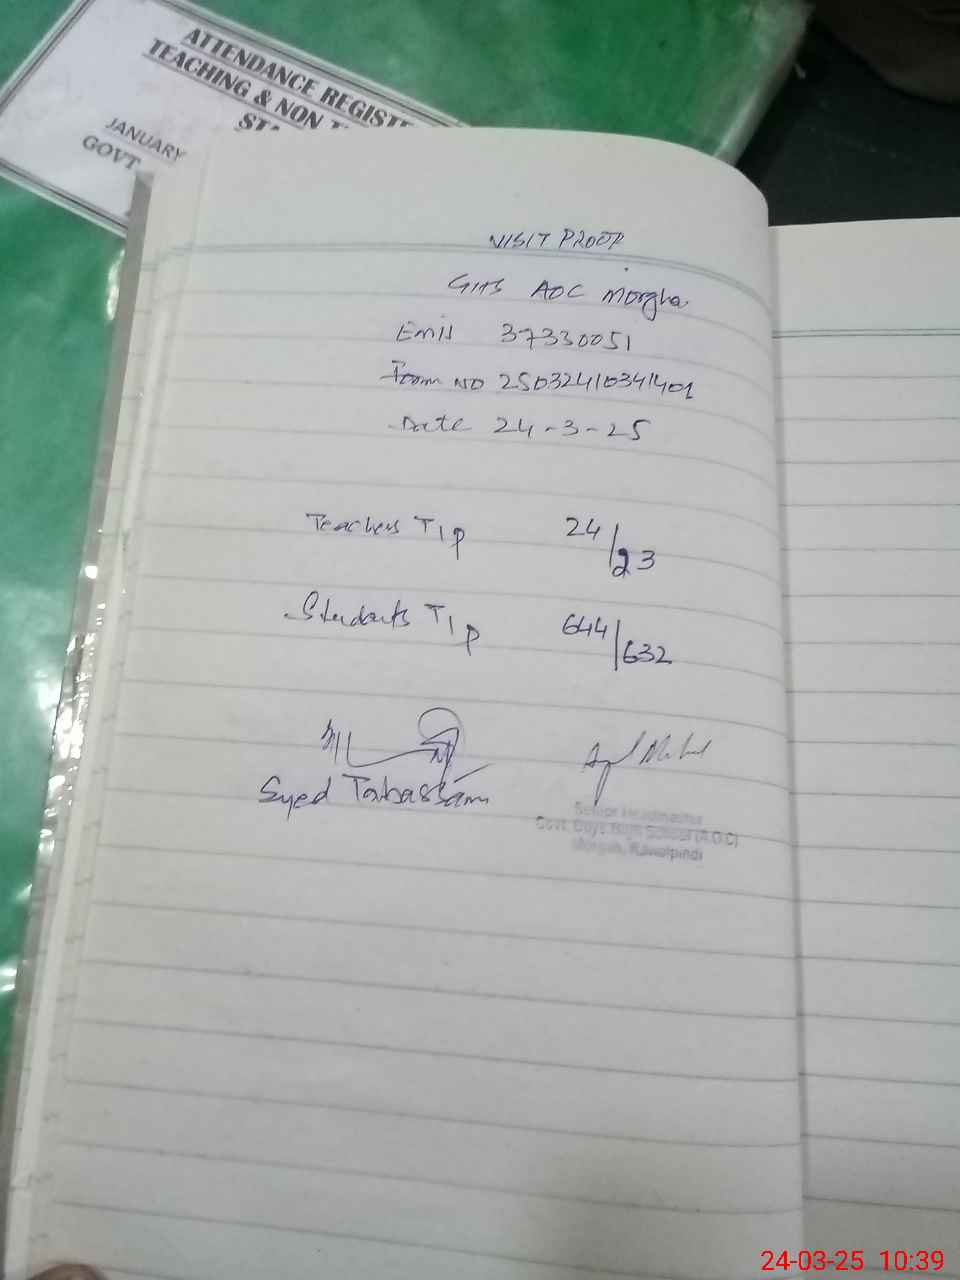 ATTENDANCE REGISTE
TEACHING & NON T
STA
JANUARY
GOVT
VISIT PROOF
GHS AOC Morgha
Emis 37330051
Form NO 25032410341401
Date 24-3-25
Teachers T/P 24/23
Students T/P 644/632
Syed Tabassam
Senior Headmaster
Govt. Boys High School (A.O.C)
Morgah, Rawalpindi
24-03-25 10:39